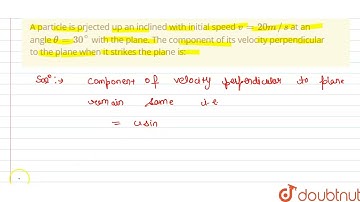 A particle is prjected up an inclined with initial speed v = 20m/s at an
angle θ = 30° with the plane. The component of its velocity perpendicular
to the plane when it strikes the plane is:
Solⁿ :→ component of velocity perpendicular to plane
remain same i.e
= u sin
doubtnut